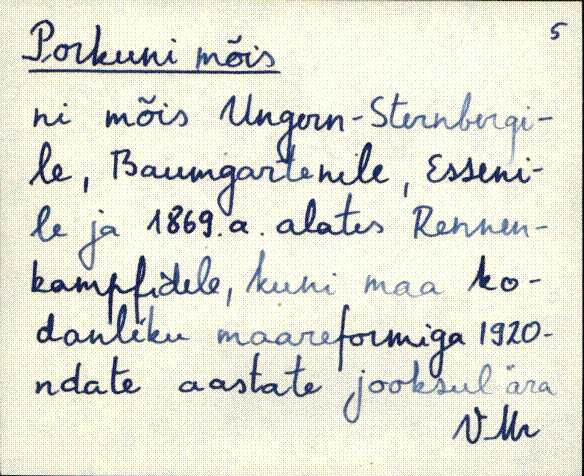 Porkuni mõis
5
ni mõis Ungern-Sternbergi-
le, Baumgartenile, Esseni-
le ja 1869.a. alates Rennen-
kampfidele, kuni maa ko-
danliku maareformiga 1920-
ndate aastate jooksul ära